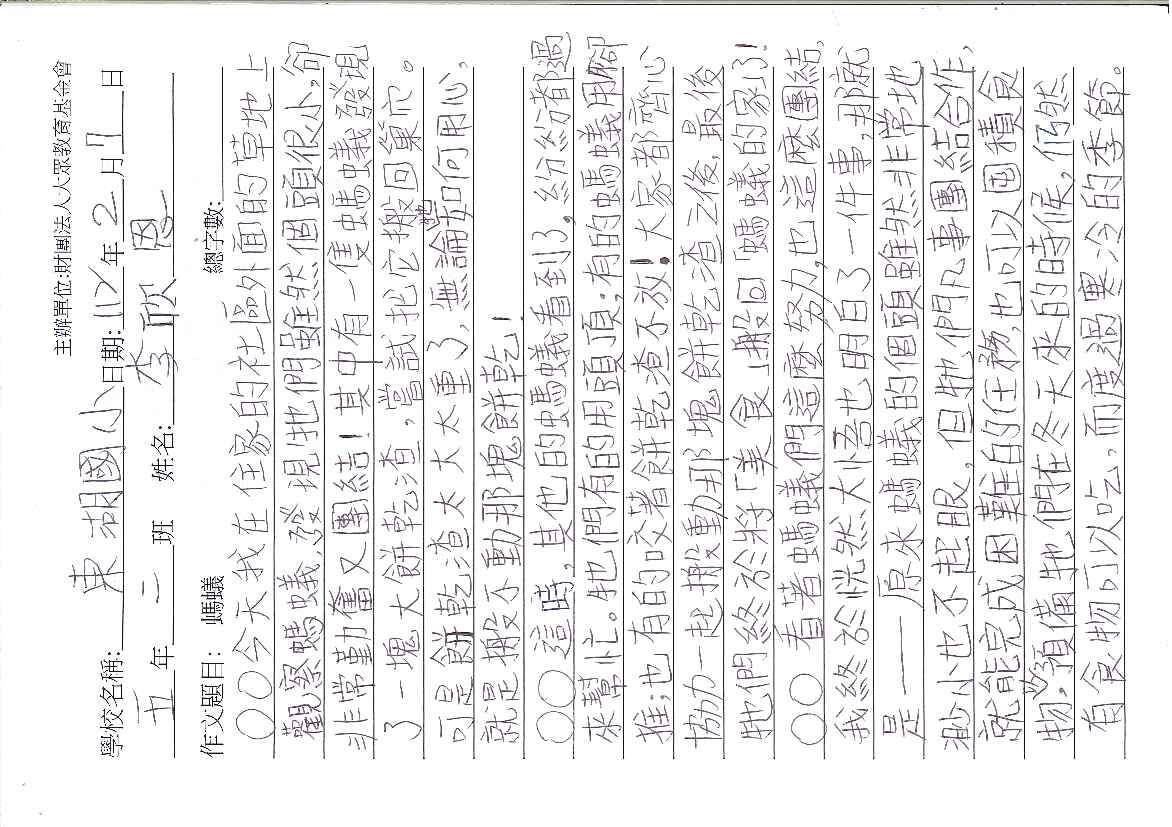 主辦單位:財團法人大眾教育基金會
學校名稱:東湖國小日期:112年2月7日
五年二班 姓名:李欣恩
作文題目: 螞蟻 總字數:
○○今天我在住家的社區外面的草地上
觀察螞蟻,發現牠們雖然個頭很小,卻
非常勤奮又團結!其中有一隻螞蟻發現
了一塊大餅乾渣,嘗試把它搬回巢穴。
可是餅乾渣太大太重了,無論牠如何用心,
就是搬不動那塊餅乾!
○○這時,其他的螞蟻看到了,紛紛都過
來幫忙。牠們有的用頭頂;有的螞蟻用腳
推;也有的咬著餅乾渣不放!大家都齊心
協力一起搬動那塊餅乾渣之後,最後
牠們終於將「美食」搬回螞蟻的家了!
○○看著螞蟻們這麼努力,也這麼團結,
我終於恍然大悟也明白了一件事,那就
是——原來螞蟻的個頭雖然非常地
渺小也不起眼,但牠們凡事團結合作,
就能完成困難的任務,也可以囤積食
物。預備牠們在冬天來的時候,仍然
有食物可以吃,而度過寒冷的季節。